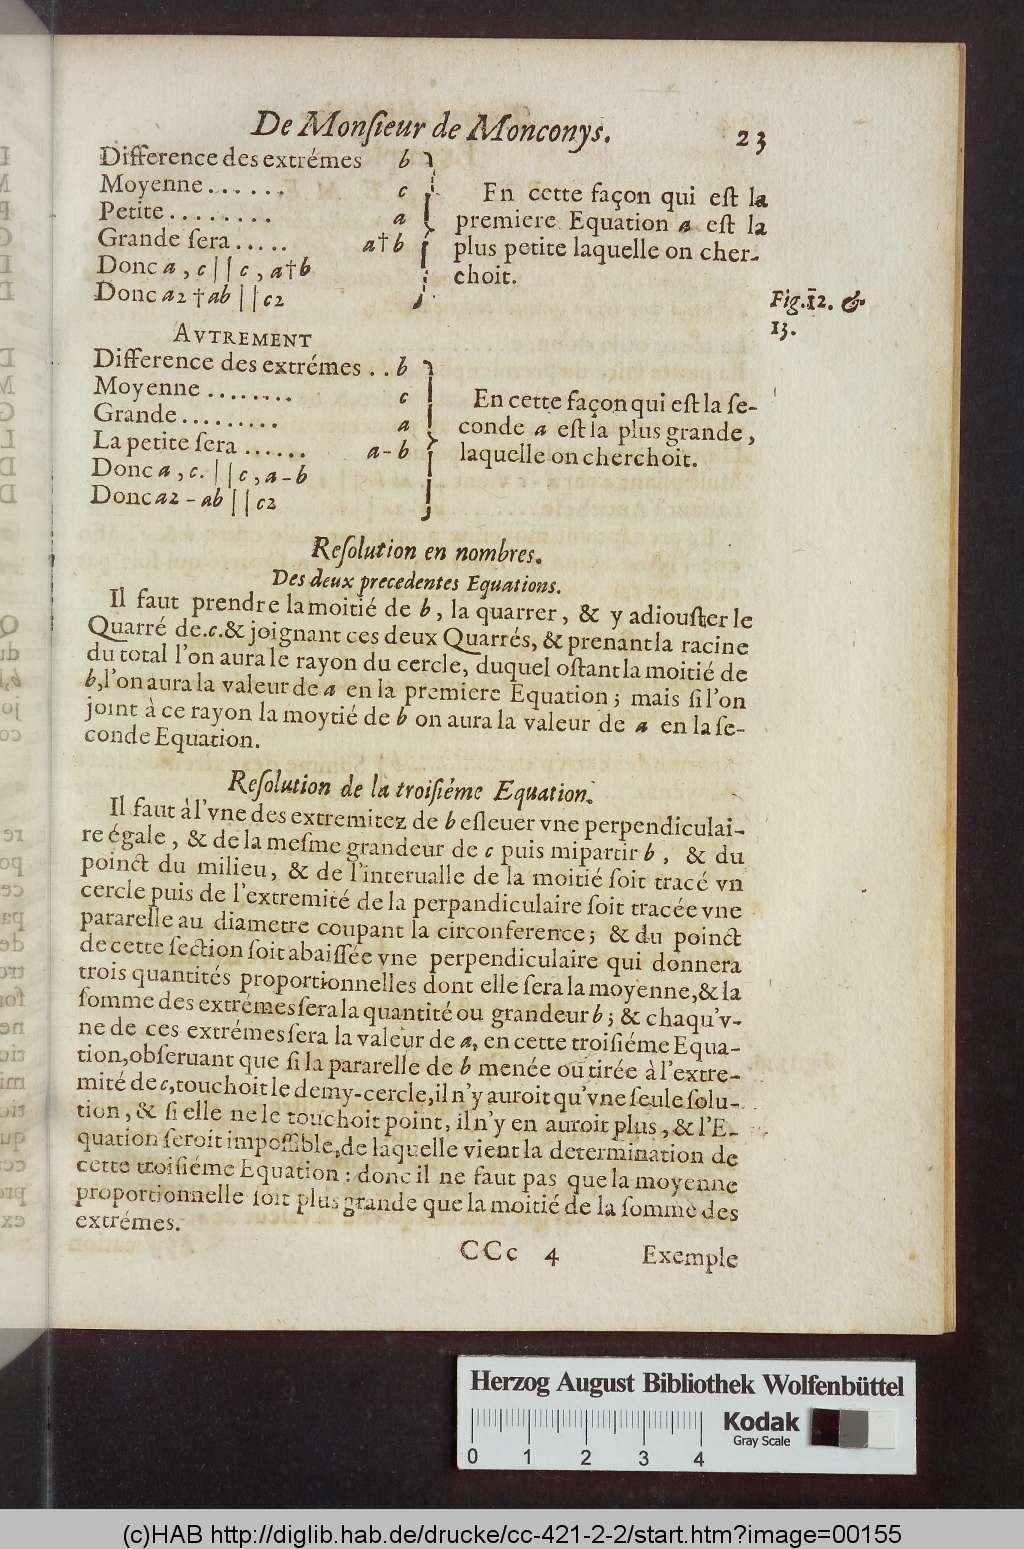 De Monſieur de Monconys. 23
Difference des extrémes b
Moyenne...... c
Petite........ a
Grande ſera..... a†b
Donc a, c || c, a†b
Donc a2 † ab || c2
En cette façon qui eſt la
premiere Equation a eſt la
plus petite laquelle on cher-
choit.
Fig. 12. &
13.
AVTREMENT
Difference des extrémes .. b
Moyenne ........ c
Grande......... a
La petite ſera ...... a-b
Donc a, c. || c, a-b
Donc a2 - ab || c2
En cette façon qui eſt la ſe-
conde a eſt la plus grande,
laquelle on cherchoit.
Reſolution en nombres.
Des deux precedentes Equations.
Il faut prendre la moitié de b, la quarrer, & y adiouſter le
Quarré de.c.& joignant ces deux Quarrés, & prenant la racine
du total l'on aura le rayon du cercle, duquel oſtant la moitié de
b, l'on aura la valeur de a en la premiere Equation; mais ſi l'on
joint à ce rayon la moytié de b on aura la valeur de a en la ſe-
conde Equation.
Reſolution de la troiſiéme Equation.
Il faut à l'vne des extremitez de b eſleuer vne perpendiculai-
re égale, & de la meſme grandeur de c puis mipartir b, & du
poinct du milieu, & de l'interualle de la moitié ſoit tracé vn
cercle puis de l'extremité de la perpandiculaire ſoit tracée vne
pararelle au diametre coupant la circonference; & du poinct
de cette ſection ſoit abaiſſée vne perpendiculaire qui donnera
trois quantités proportionnelles dont elle ſera la moyenne, & la
ſomme des extrémes ſera la quantité ou grandeur b; & chaqu'v-
ne de ces extrémes ſera la valeur de a, en cette troiſiéme Equa-
tion, obſeruant que ſi la pararelle de b menée ou tirée à l'extre-
mité de c, touchoit le demy-cercle, il n'y auroit qu'vne ſeule ſolu-
tion, & ſi elle ne le touchoit point, il n'y en auroit plus, & l'E-
quation ſeroit impoſſible, de laquelle vient la determination de
cette troiſiéme Equation : donc il ne faut pas que la moyenne
proportionnelle ſoit plus grande que la moitié de la ſomme des
extrémes.
CCc 4 Exemple
Herzog August Bibliothek Wolfenbüttel
Kodak
Gray Scale
0 1 2 3 4
(c)HAB http://diglib.hab.de/drucke/cc-421-2-2/start.htm?image=00155